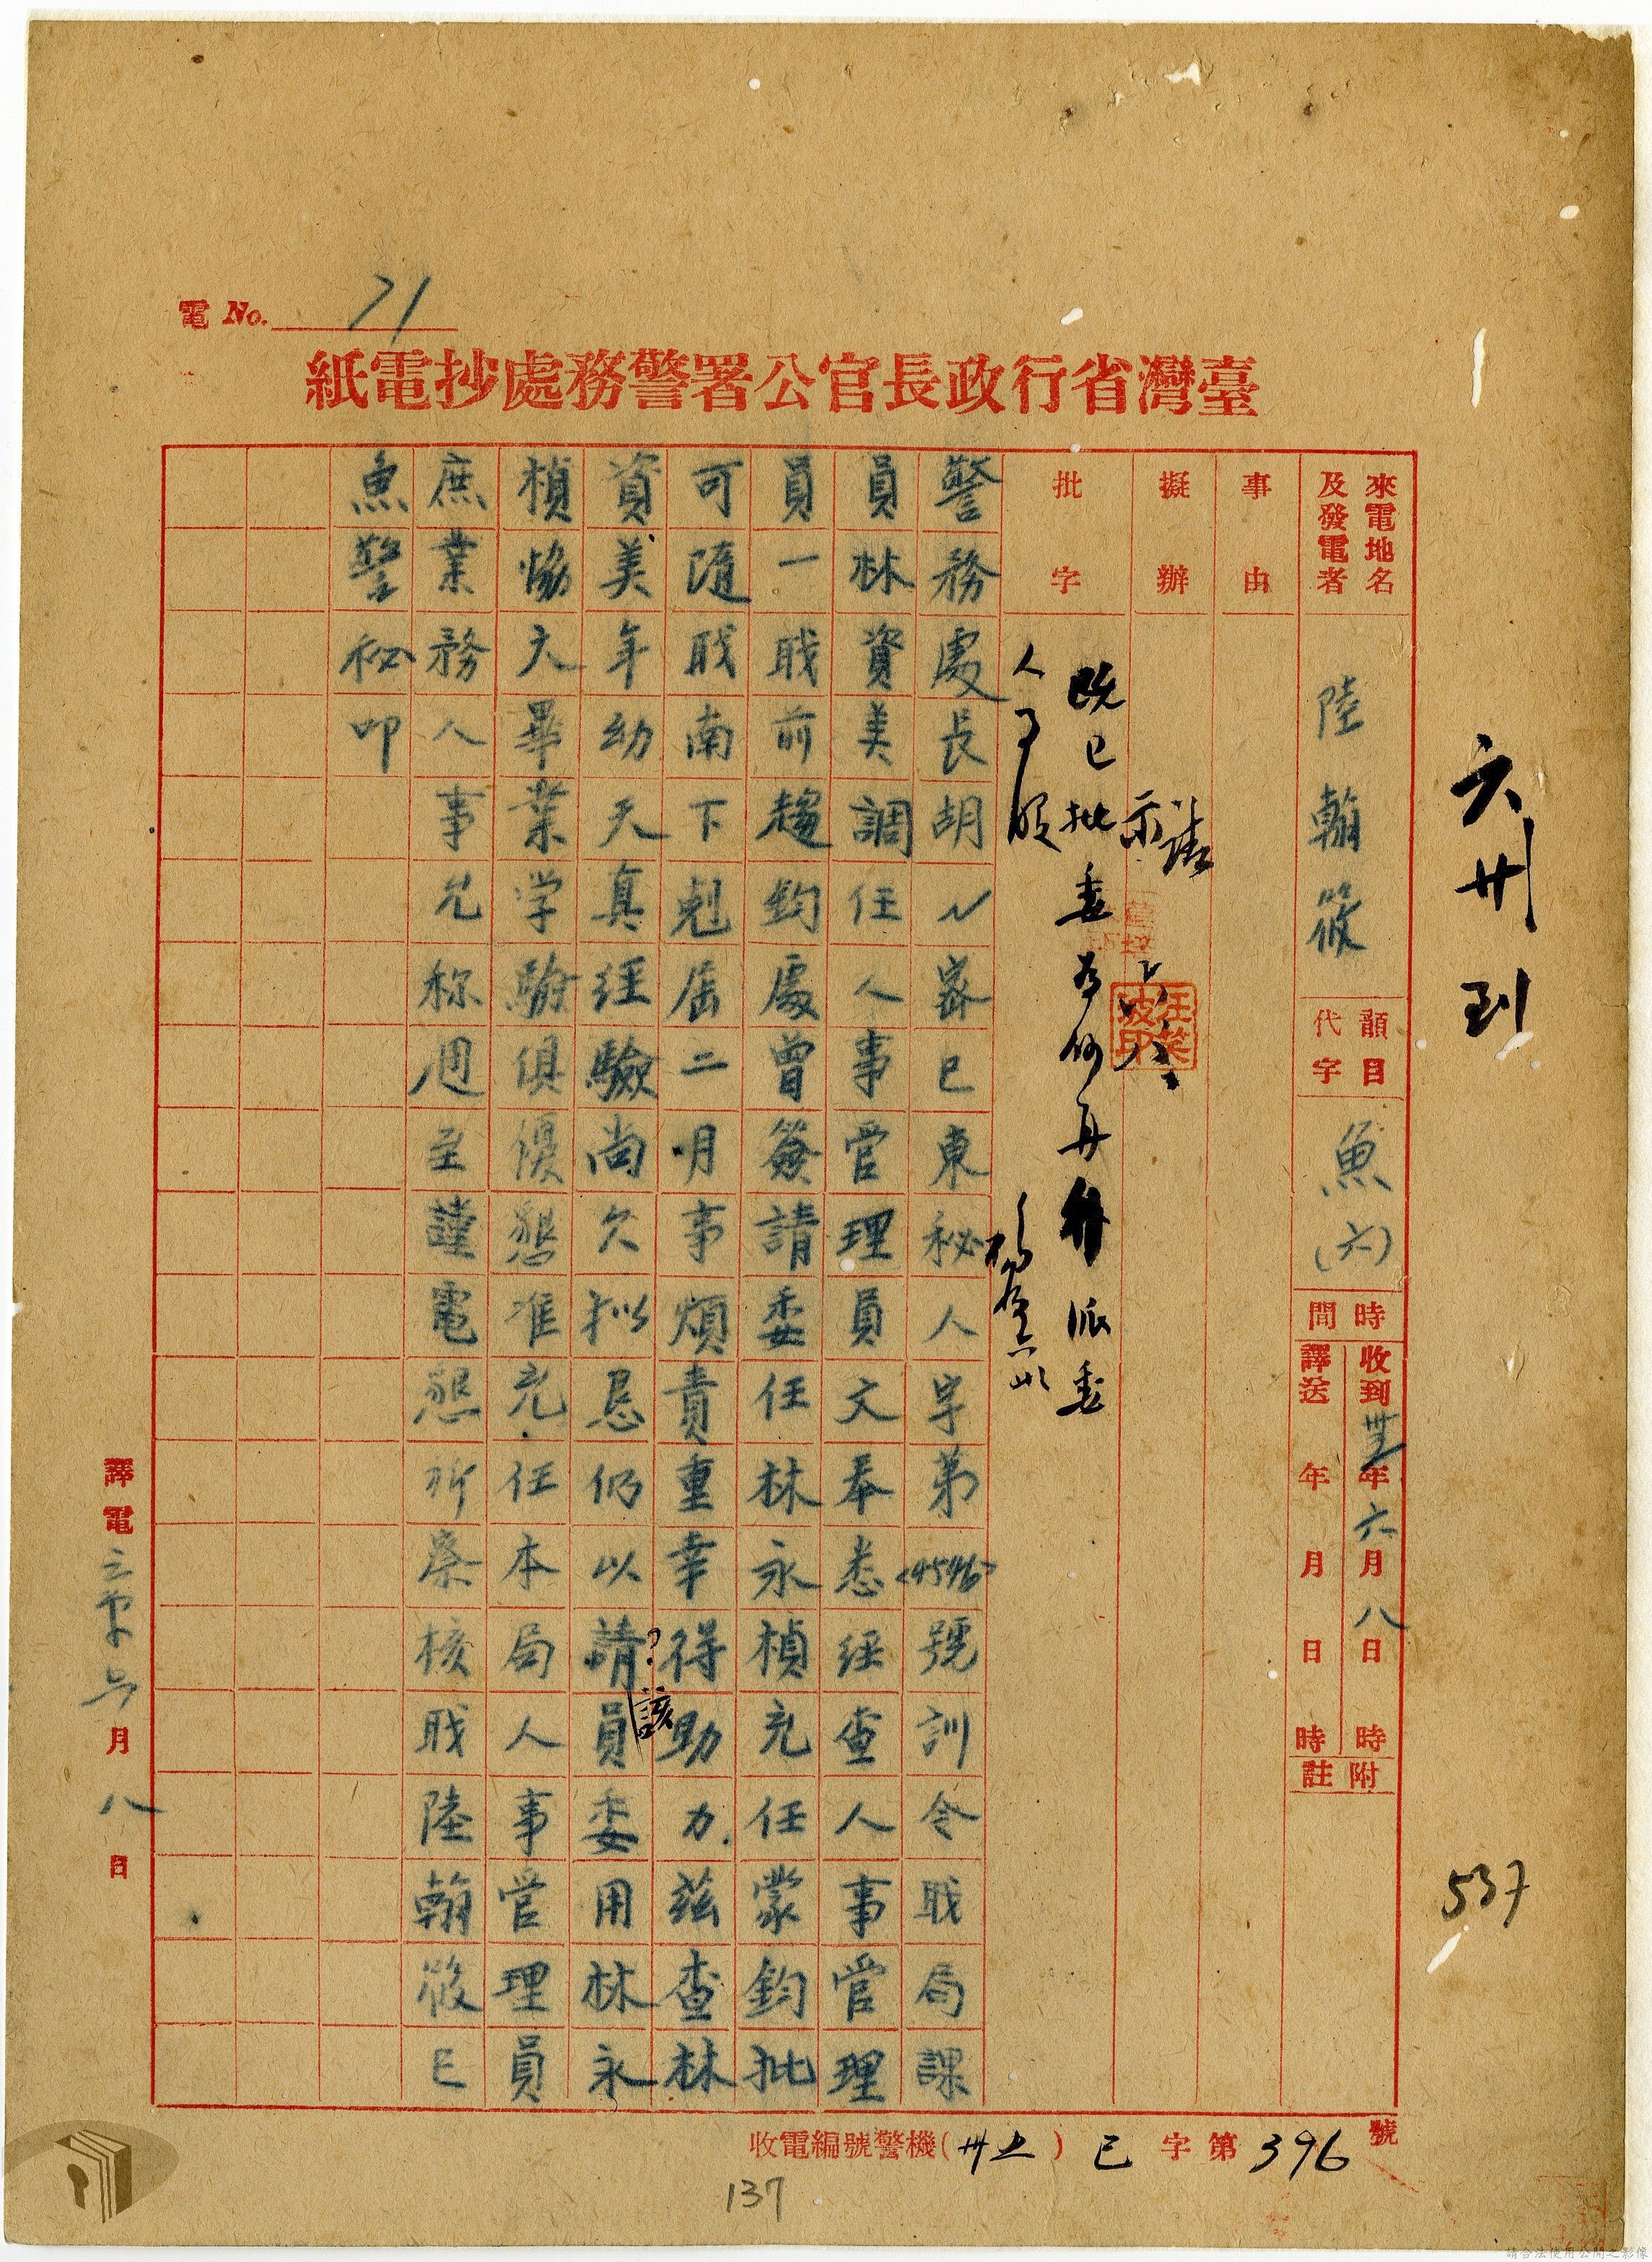 電 No. 71
臺灣省行政長官公署警務處抄電紙
六卅到
來電地名及發電者
陸翰筱
韻目代字
魚(六)
時間
收到 卅五年六月八日 時
譯送 年 月 日 時
附註
537
事由
擬辦
請示
六、八、
汪榮波印
批字
既已批委為何再併派委
人事股
警務處長胡〻密已東秘人字第<4546>號訓令职局課
員林資美調任人事管理員文奉悉經查人事管理
員一职前趨鈞處曾簽請委任林永楨充任蒙鈞批
可隨职南下剋屆二月事煩責重幸得助力.茲查林
資美年幼天真經驗尚欠拟忌仍以請員委用林永
?該
楨協大畢業学驗俱優懇准充任本局人事管理員
庶業務人事允称週至謹電懇祈察核职陸翰筱巳
魚警秘叩
譯電 月八日
收電編號警機(卅五)巳字第396號
137
請合法使用公開之影像